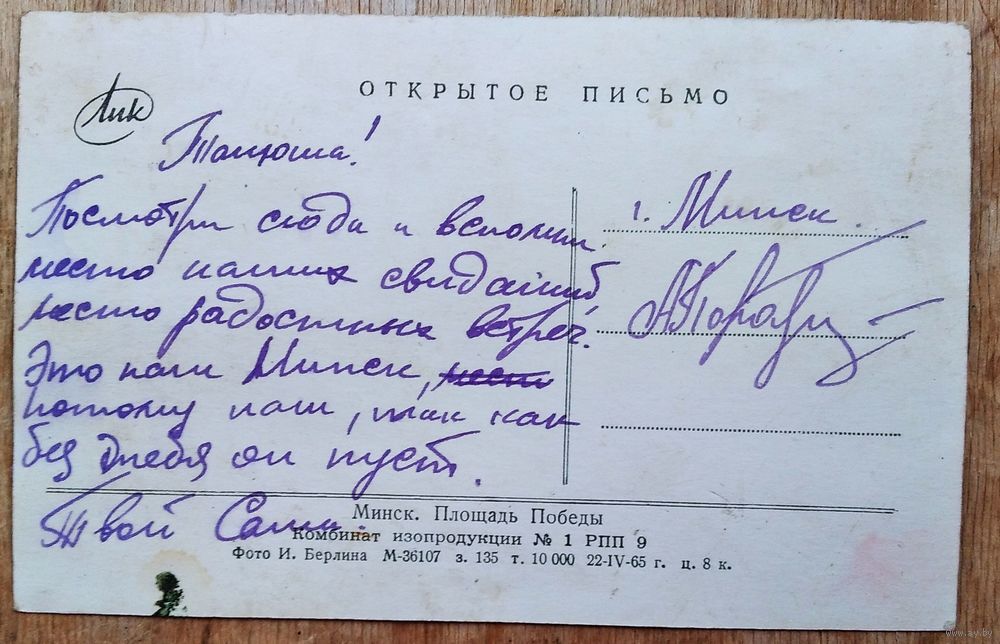 ОТКРЫТОЕ ПИСЬМО
Лик
Танюша!
Посмотри сюда и вспомни
место наших свиданий
место радостных встреч.
Это наш Минск, мест
потому наш, так как
без тебя он пуст.
Твой Саша.
г. Минск
Минск. Площадь Победы
Комбинат изопродукции № 1 РПП 9
Фото И. Берлина М-36107 з. 135 т. 10 000 22-IV-65 г. ц. 8 к.
www.ay.by